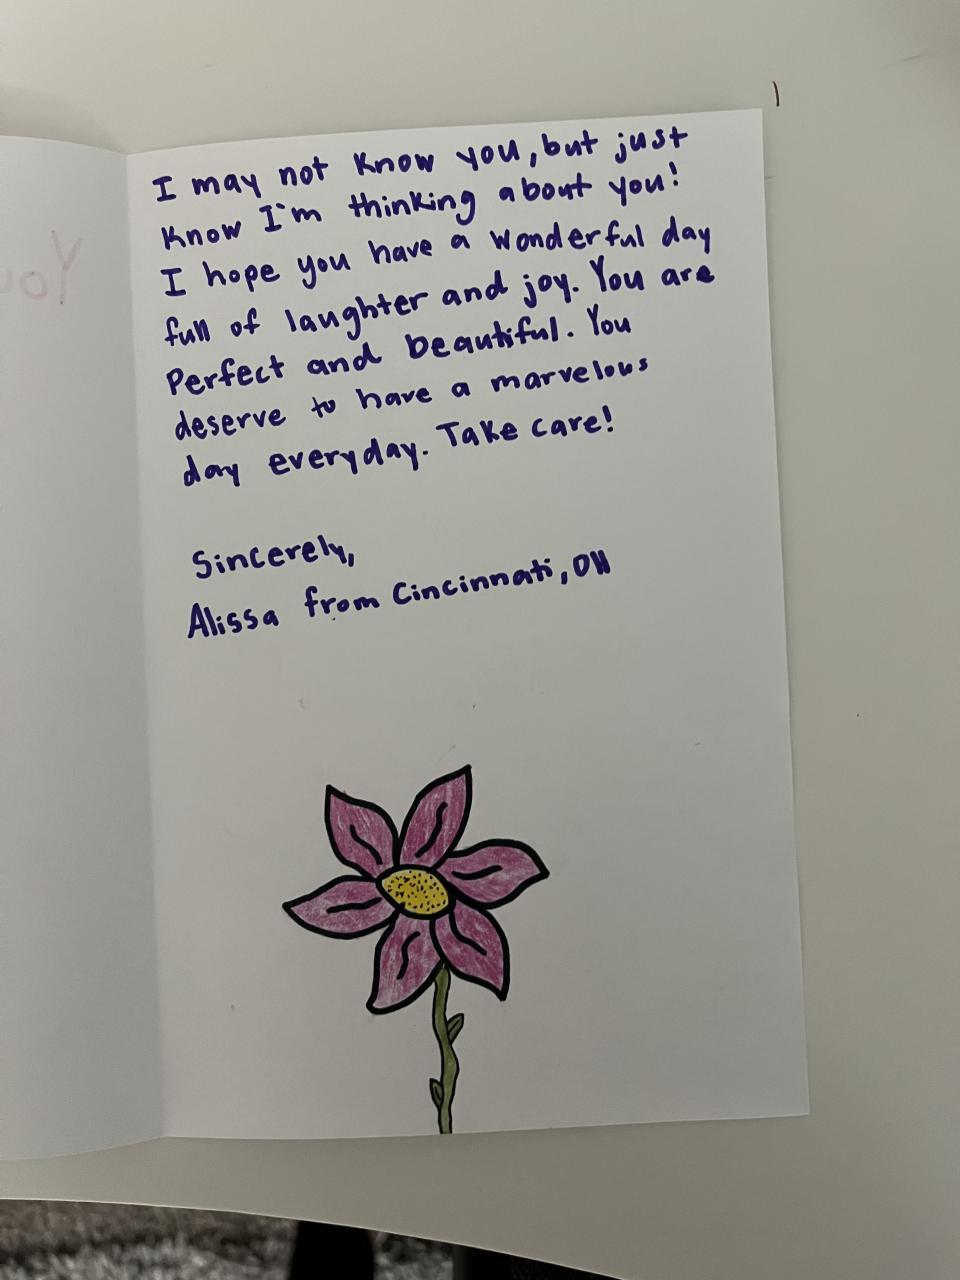 I may not know you, but just
know I'm thinking about you!
I hope you have a wonderful day
full of laughter and joy. You are
Perfect and beautiful. You
deserve to have a marvelous
day everyday. Take care!
Sincerely,
Alissa from Cincinnati, OH